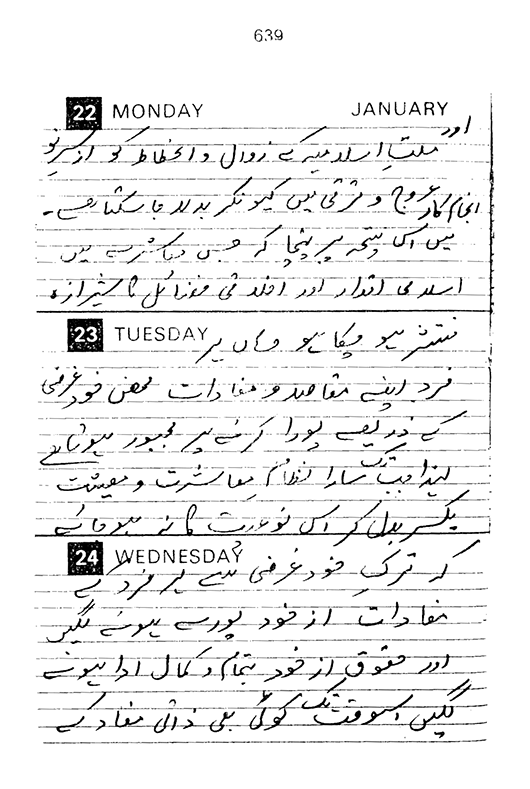 639
22 MONDAY JANUARY
اور
ملتِ اسلامیہ کے زوال و انحطاط کو از سرِ نو
انجام کار عروج و ترقی میں کیونکر بدلا جا سکتا ہے۔
میں اس نتیجہ پر پہنچا کہ جس معاشرے میں
اسلامی اقدار اور اخلاقی فضائل کا شیرازہ
23 TUESDAY
منتشر ہو چکا ہو وہاں ہر
فرد اپنے مقاصد و مفادات محض خود غرضی
کے ذریعے پورا کرنے پر مجبور ہوتا ہے
لہٰذا جب تک سارا نظام معاشرت و معیشت
یکسر بدل کر اس نوعیت کا نہ ہو جائے
24 WEDNESDAY
کہ ترکِ خود غرضی سے ہر فرد کے
مفادات از خود پورے ہونے لگیں
اور حقوق از خود بتمام و کمال ادا ہونے
لگیں اسوقت تک کوئی بھی ذاتی مفاد کے